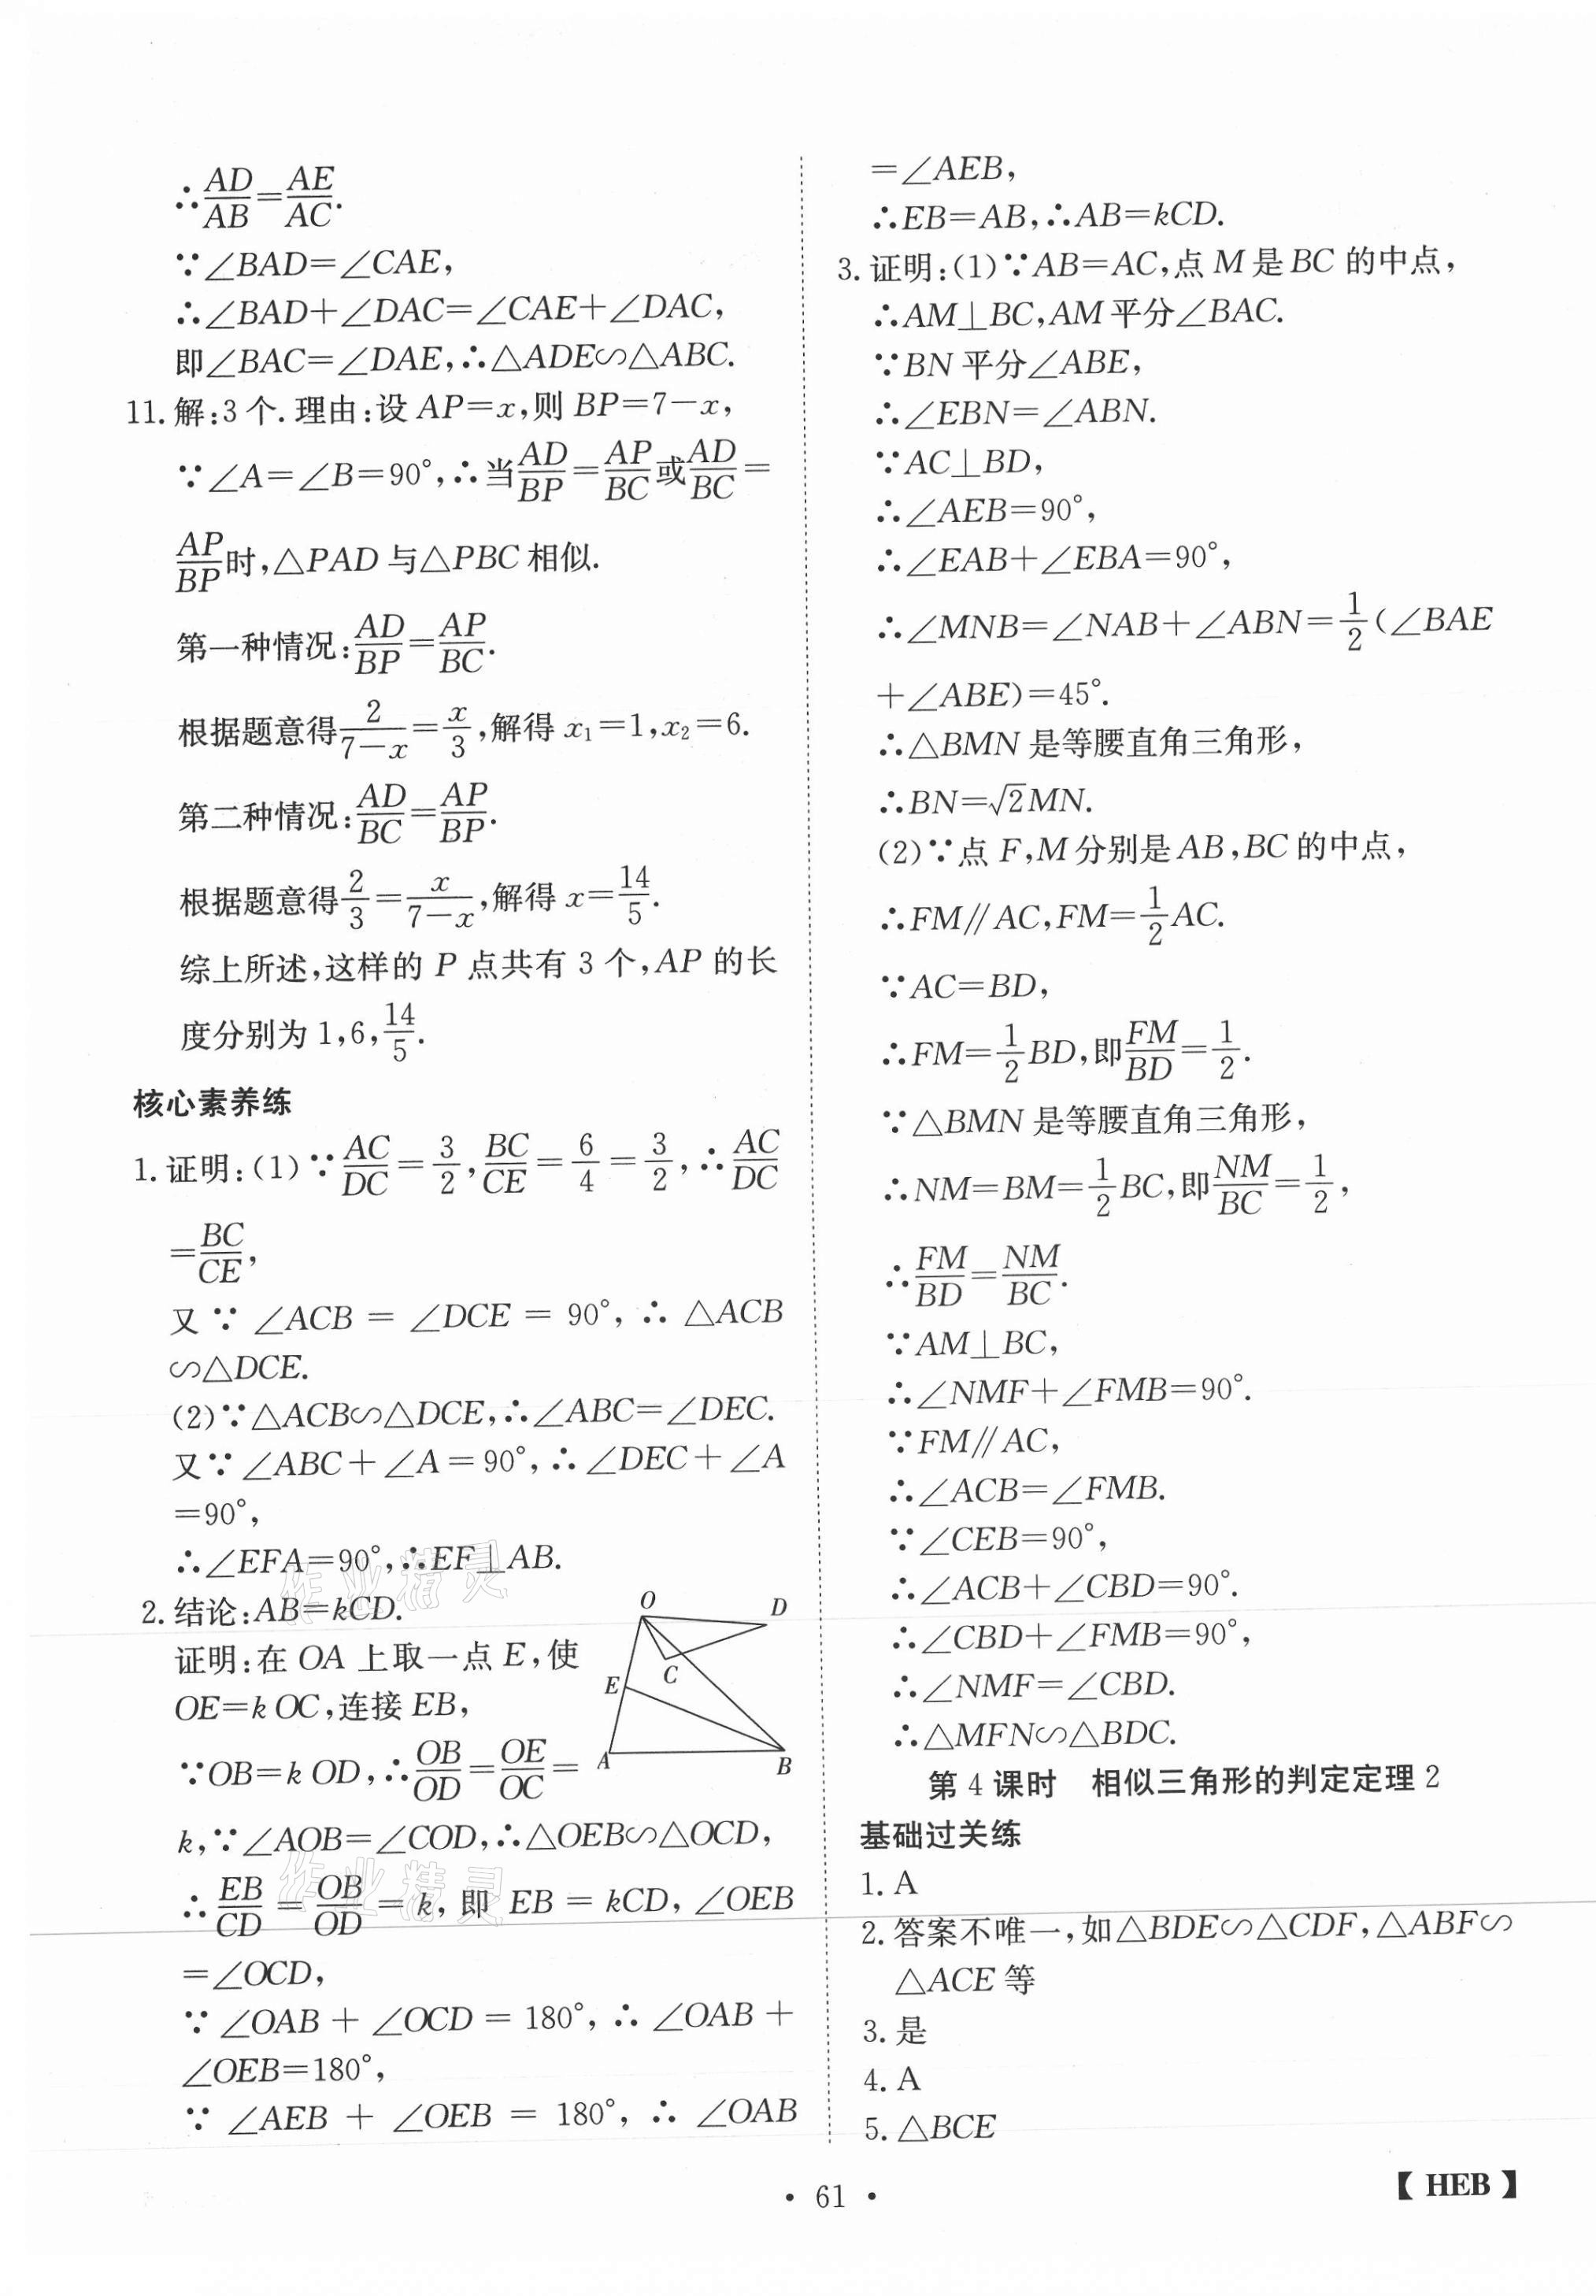 ∴AD/AB=AE/AC.
∵∠BAD=∠CAE,
∴∠BAD+∠DAC=∠CAE+∠DAC,
即∠BAC=∠DAE,∴△ADE∽△ABC.
11. 解:3个.理由:设AP=x,则BP=7-x,
∵∠A=∠B=90°,∴当AD/BP=AP/BC或AD/BC=
AP/BP时,△PAD与△PBC相似.
第一种情况:AD/BP=AP/BC.
根据题意得2/(7-x)=x/3,解得x₁=1,x₂=6.
第二种情况:AD/BC=AP/BP.
根据题意得2/3=x/(7-x),解得x=14/5.
综上所述,这样的P点共有3个,AP的长
度分别为1,6,14/5.
核心素养练
1. 证明:(1)∵AC/DC=3/2,BC/CE=6/4=3/2,∴AC/DC
=BC/CE,
又∵∠ACB=∠DCE=90°,∴△ACB
∽△DCE.
(2)∵△ACB∽△DCE,∴∠ABC=∠DEC.
又∵∠ABC+∠A=90°,∴∠DEC+∠A
=90°,
∴∠EFA=90°,∴EF⊥AB.
2. 结论:AB=kCD.
证明:在OA上取一点E,使
OE=kOC,连接EB,
∵OB=kOD,∴OB/OD=OE/OC=
k,∵∠AOB=∠COD,∴△OEB∽△OCD,
∴EB/CD=OB/OD=k,即EB=kCD,∠OEB
=∠OCD,
∵∠OAB+∠OCD=180°,∴∠OAB+
∠OEB=180°,
∵∠AEB+∠OEB=180°,∴∠OAB
O
D
C
E
A
B
作业精灵
作业精灵
=∠AEB,
∴EB=AB,∴AB=kCD.
3. 证明:(1)∵AB=AC,点M是BC的中点,
∴AM⊥BC,AM平分∠BAC.
∵BN平分∠ABE,
∴∠EBN=∠ABN.
∵AC⊥BD,
∴∠AEB=90°,
∴∠EAB+∠EBA=90°,
∴∠MNB=∠NAB+∠ABN=1/2(∠BAE
+∠ABE)=45°.
∴△BMN是等腰直角三角形,
∴BN=√2MN.
(2)∵点F,M分别是AB,BC的中点,
∴FM∥AC,FM=1/2AC.
∵AC=BD,
∴FM=1/2BD,即FM/BD=1/2.
∵△BMN是等腰直角三角形,
∴NM=BM=1/2BC,即NM/BC=1/2,
∴FM/BD=NM/BC.
∵AM⊥BC,
∴∠NMF+∠FMB=90°.
∵FM∥AC,
∴∠ACB=∠FMB.
∵∠CEB=90°,
∴∠ACB+∠CBD=90°.
∴∠CBD+∠FMB=90°,
∴∠NMF=∠CBD.
∴△MFN∽△BDC.
第4课时 相似三角形的判定定理2
基础过关练
1. A
2. 答案不唯一,如△BDE∽△CDF,△ABF∽
△ACE等
3. 是
4. A
5. △BCE
• 61 •
【HEB】